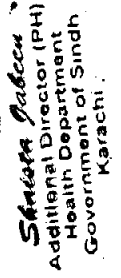 Shaista Jabeen
Additional Director (PH)
Health Department
Government of Sindh
Karachi.